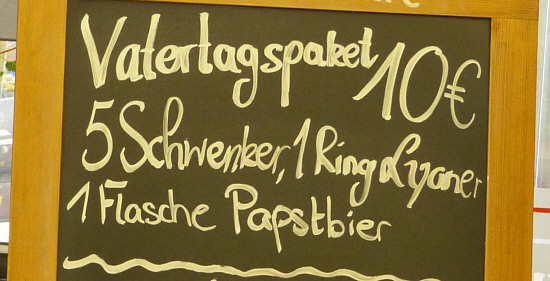 Vatertagspaket 10€
5 Schwenker, 1 Ring Lyoner
1 Flasche Papstbier